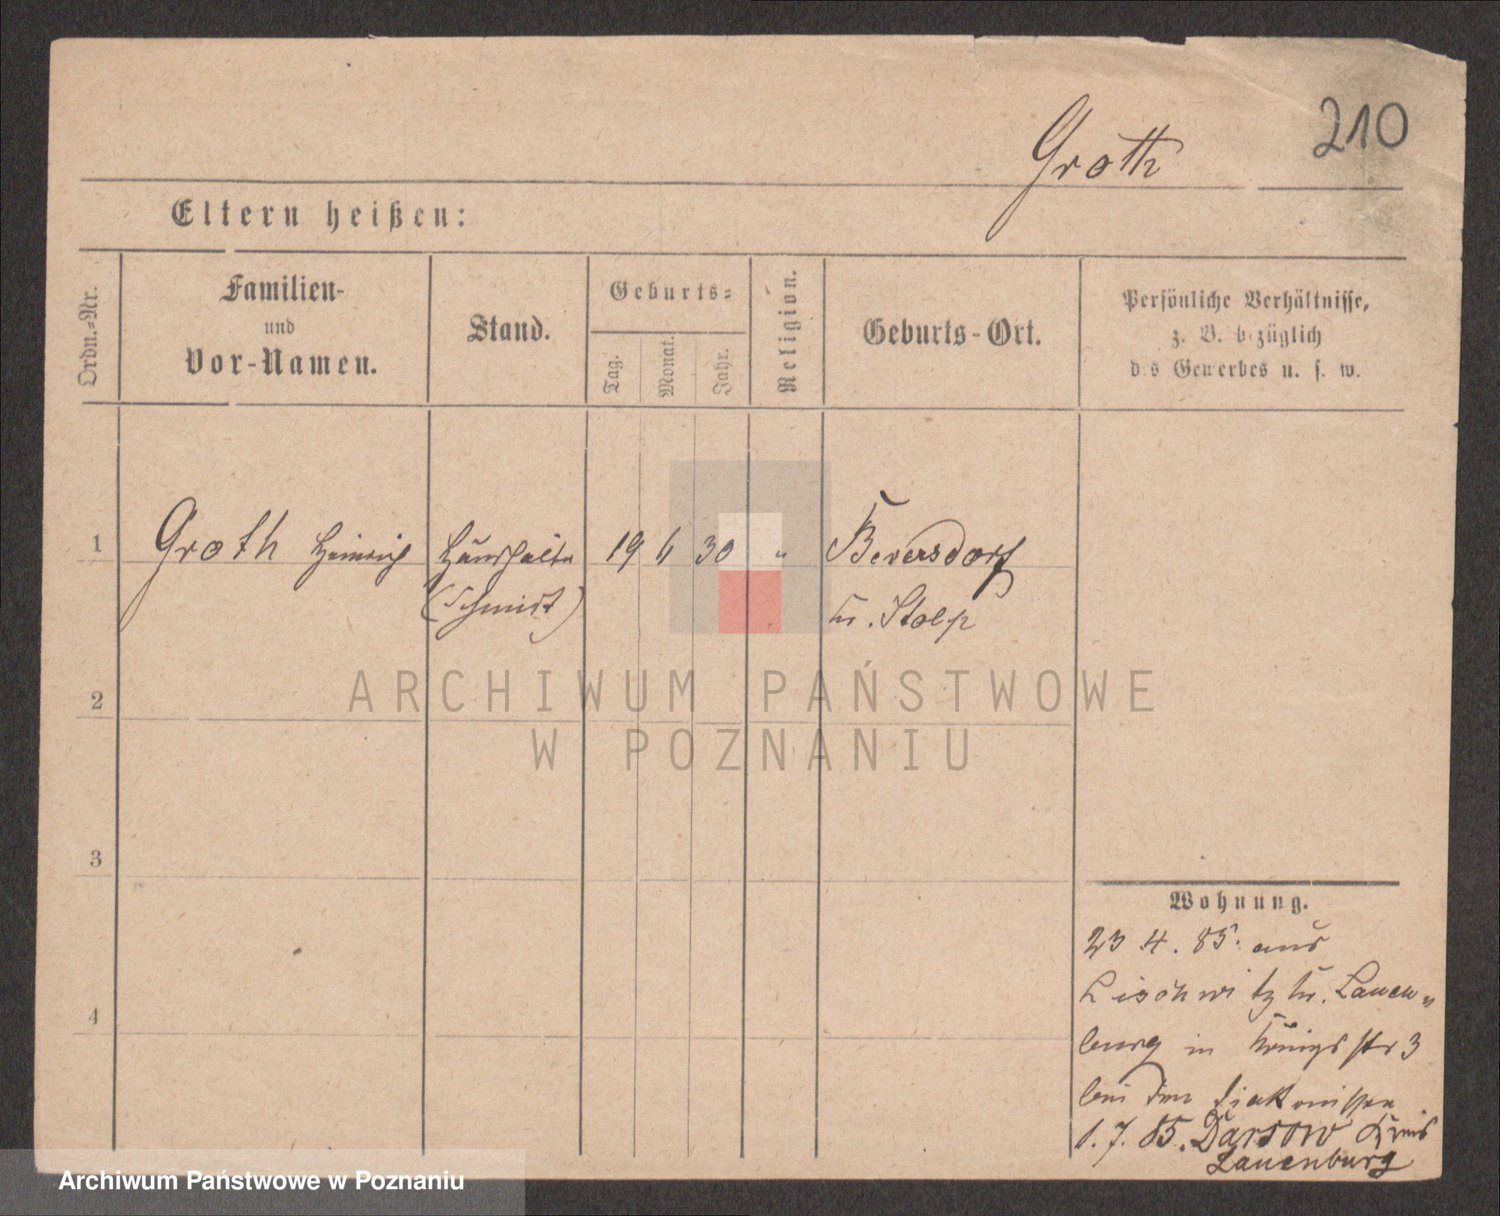 210
Groth
Eltern heißen:
Ordn.=Nr.
Familien-
und
Vor-Namen.
Stand.
Geburts=
Tag.
Monat.
Jahr.
Religion.
Geburts-Ort.
Persönliche Verhältnisse,
z. B. bezüglich
des Gewerbes u. s. w.
1
Groth Heinrich
Haushälter
(Schmidt)
19 6 30
"
Beversdorf
Kr. Stolp
2
3
4
Wohnung.
23 4. 85. aus
Lischwitz Kr. Lauen„
burg in Königsstr 3
bei den Diakonissen
1. 7. 85. Darsow Kreis
Lauenburg
ARCHIWUM PAŃSTWOWE
W POZNANIU
Archiwum Państwowe w Poznaniu